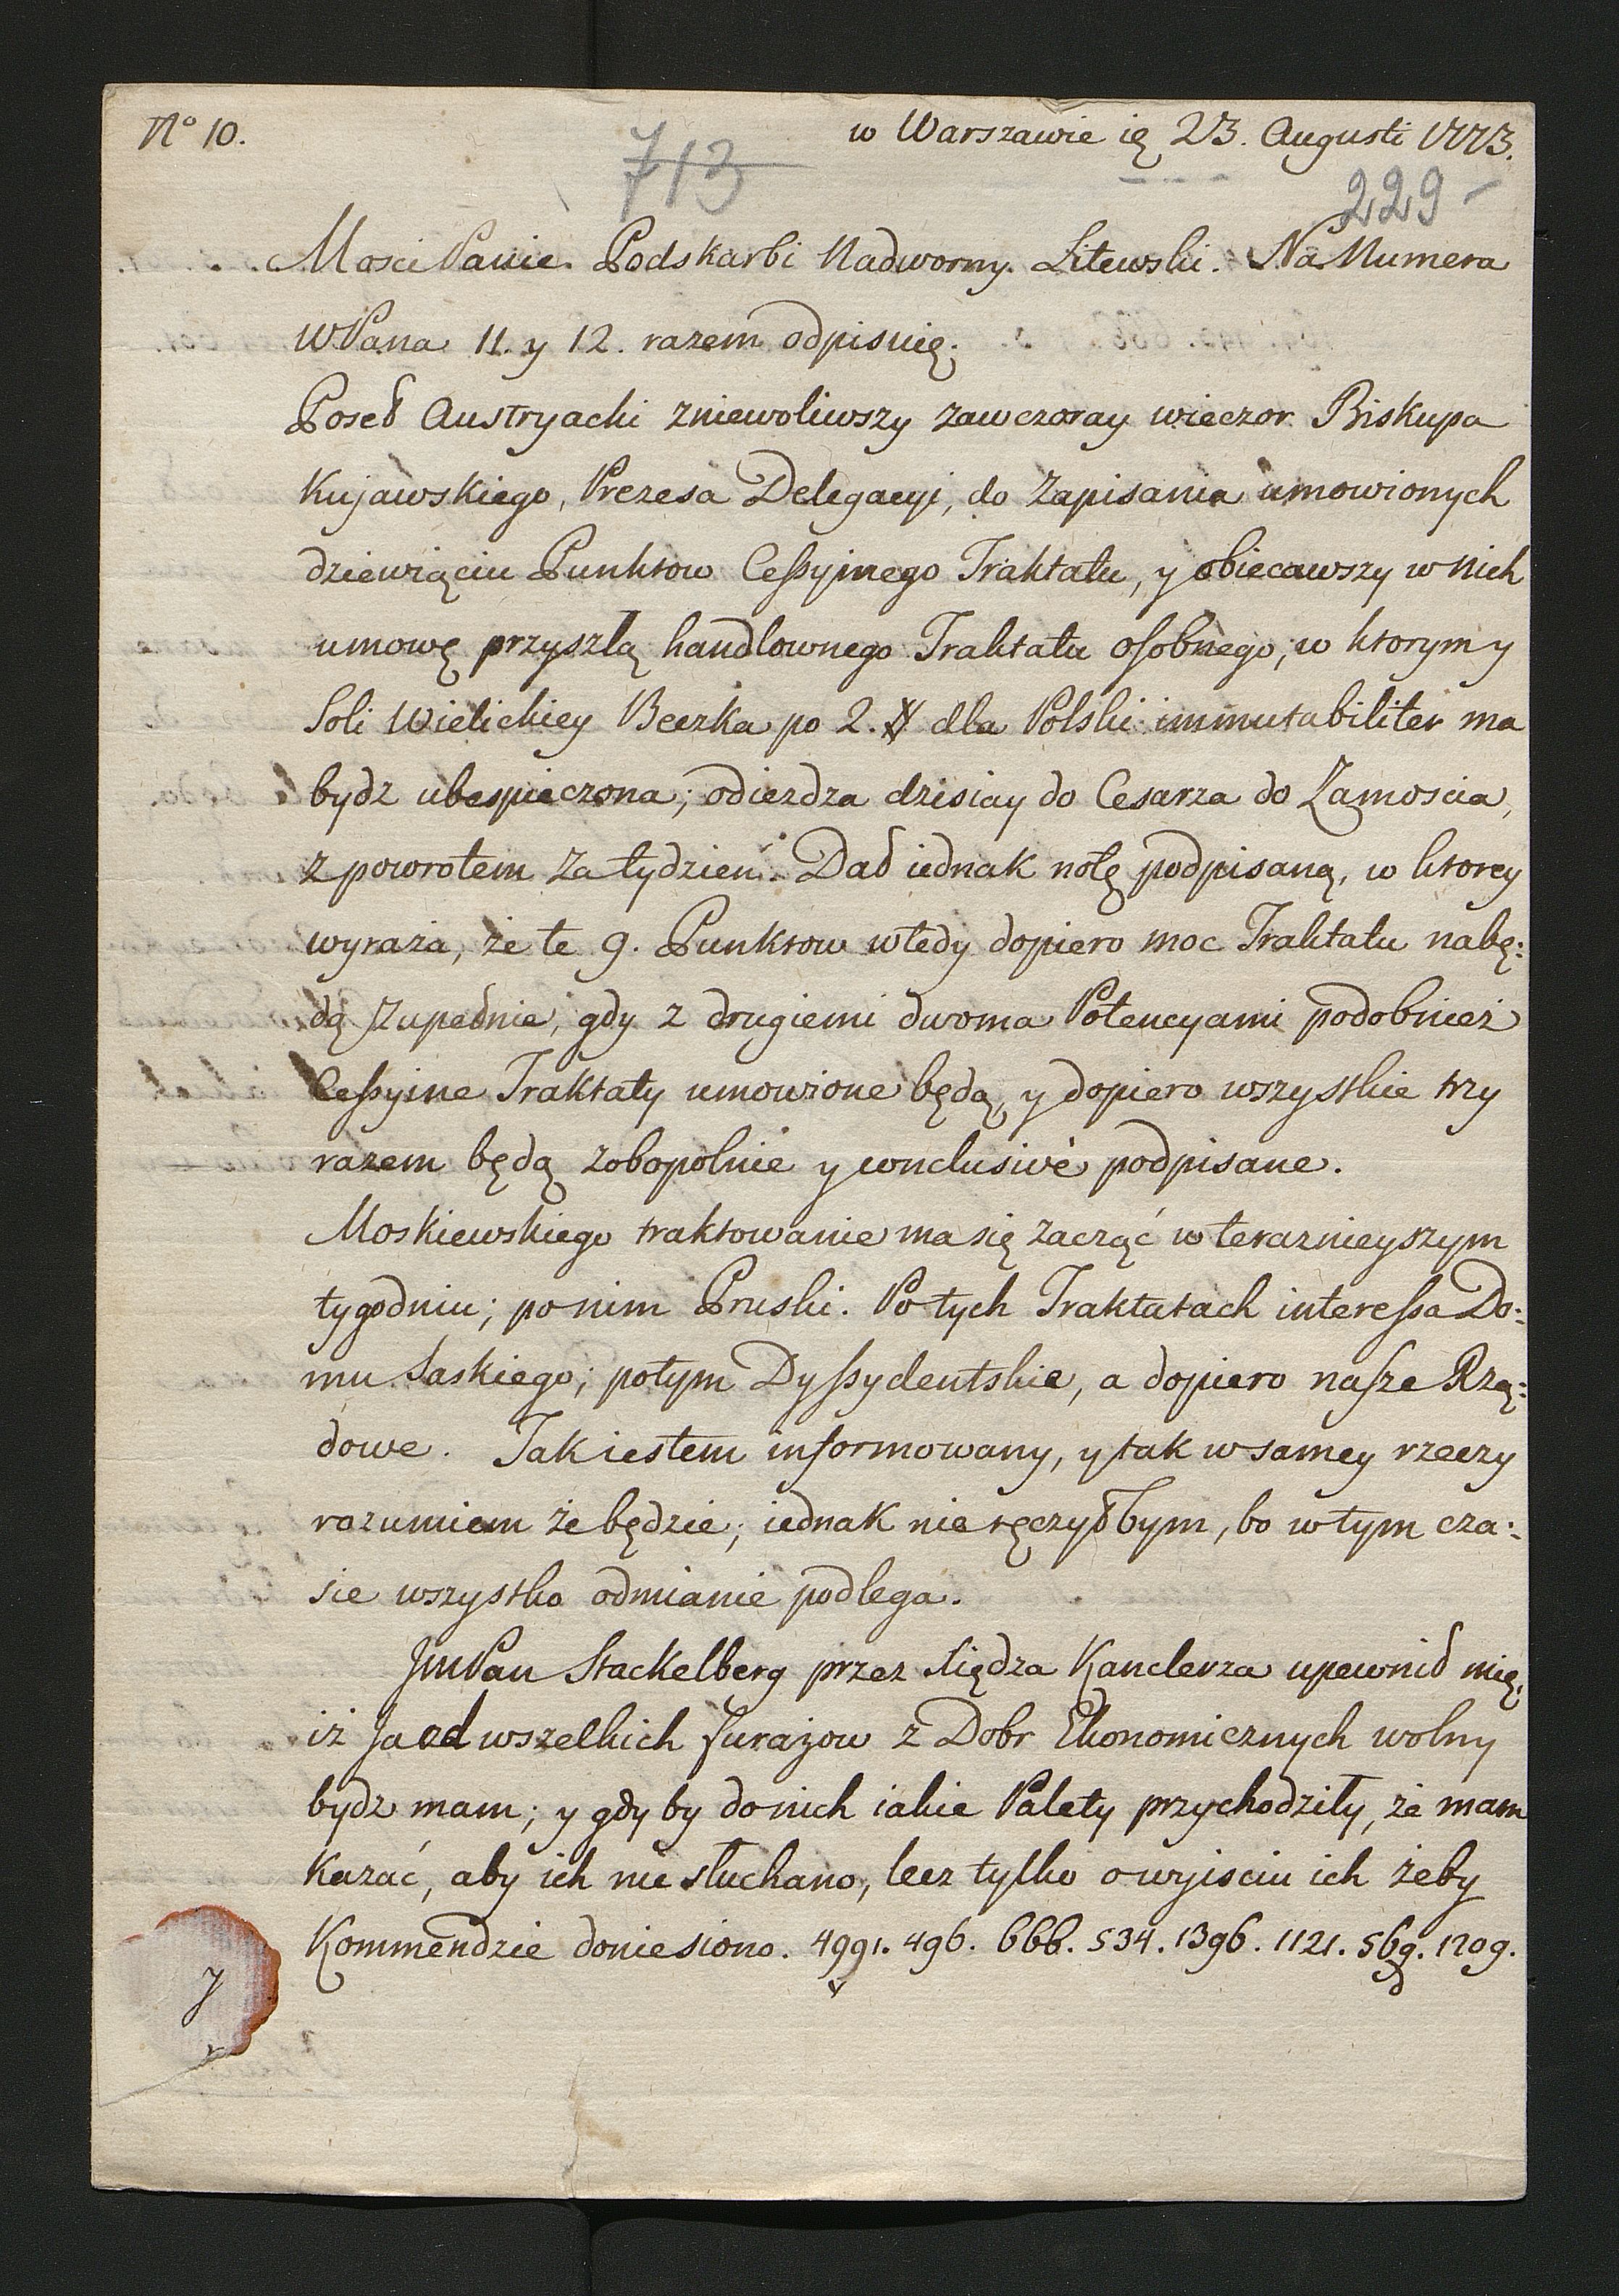 No 10.
w Warszawie ię 23. Augusti 1773.
713
229
Mosci Panie Podskarbi Nadworny Litewski. Na Numera
WPana 11. y 12. razem odpisuię.
Poseł Austryacki zniewoliwszy zawczoray wieczor Biskupa
Kujawskiego, Prezesa Delegacyi, do zapisania umowionych
dziewięciu Punktow Cessyinego Traktatu, y obiecawszy w nich
umowę przyszłą handlownego Traktatu osobnego, w ktorym y
Soli Wielickiey Beczka po 2. # dla Polski immutabiliter ma
bydz ubespieczona; odiezdza dzisiay do Cesarza do Zamoscia,
z powrotem za tydzień. Dał iednak notę podpisaną, w ktorey
wyraża, że te 9. Punktow wtedy dopiero moc Traktatu nabę:
dą zupełnie, gdy z drugiemi dwoma Potencyami podobnież
Cessyine Traktaty umowione będą, y dopiero wszystkie trzy
razem będą zobopolnie y conclusivè podpisane.
Moskiewskiego traktowanie ma się zacząć w teraznieyszym
tygodniu; po nim Pruski. Po tych Traktatach interessa Do:
mu Saskiego; potym Dyssydentskie, a dopiero nasze Rzą:
dowe. Tak iestem informowany, y tak w samey rzeczy
rozumiem że będzie; iednak nie ręczyłbym, bo w tym cza:
sie wszystko odmianie podlega.
JmPan Stackelberg przez Xiędza Kanclerza upewnił mię,
iż Ja od wszelkich furażow z Dobr Ekonomicznych wolny
bydz mam; y gdyby do nich iakie Palety przychodziły, że mam
kazać, aby ich nie słuchano, lecz tylko o wyisciu ich żeby
Kommendzie doniesiono. 4991. 496. 666. 534. 1396. 1121. 569. 1709.